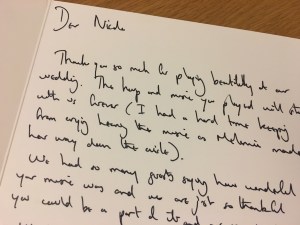 Dear Nicola
Thank you so much for playing beautifully at our
wedding. The harp and music you played will stay
with us forever (I had a hard time keeping
from crying hearing the music as Melanie made
her way down the aisle).
We had so many guests saying how wonderful
your music was and we are just so thankful
you could be a part of it and